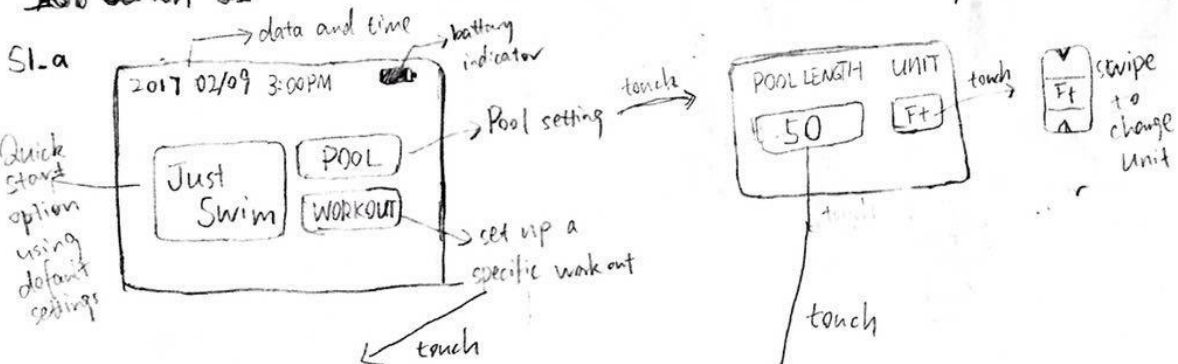 S1_a
data and time
battary
indicator
2017 02/09 3:00PM
Quick
start
option
using
defau't
settings
Just
Swim
POOL
WORKOUT
Pool setting
touch
set up a
specific workout
touch
POOL LENGTH UNIT
50
Ft
touch
Ft
swipe
to
change
Unit
touch
touch